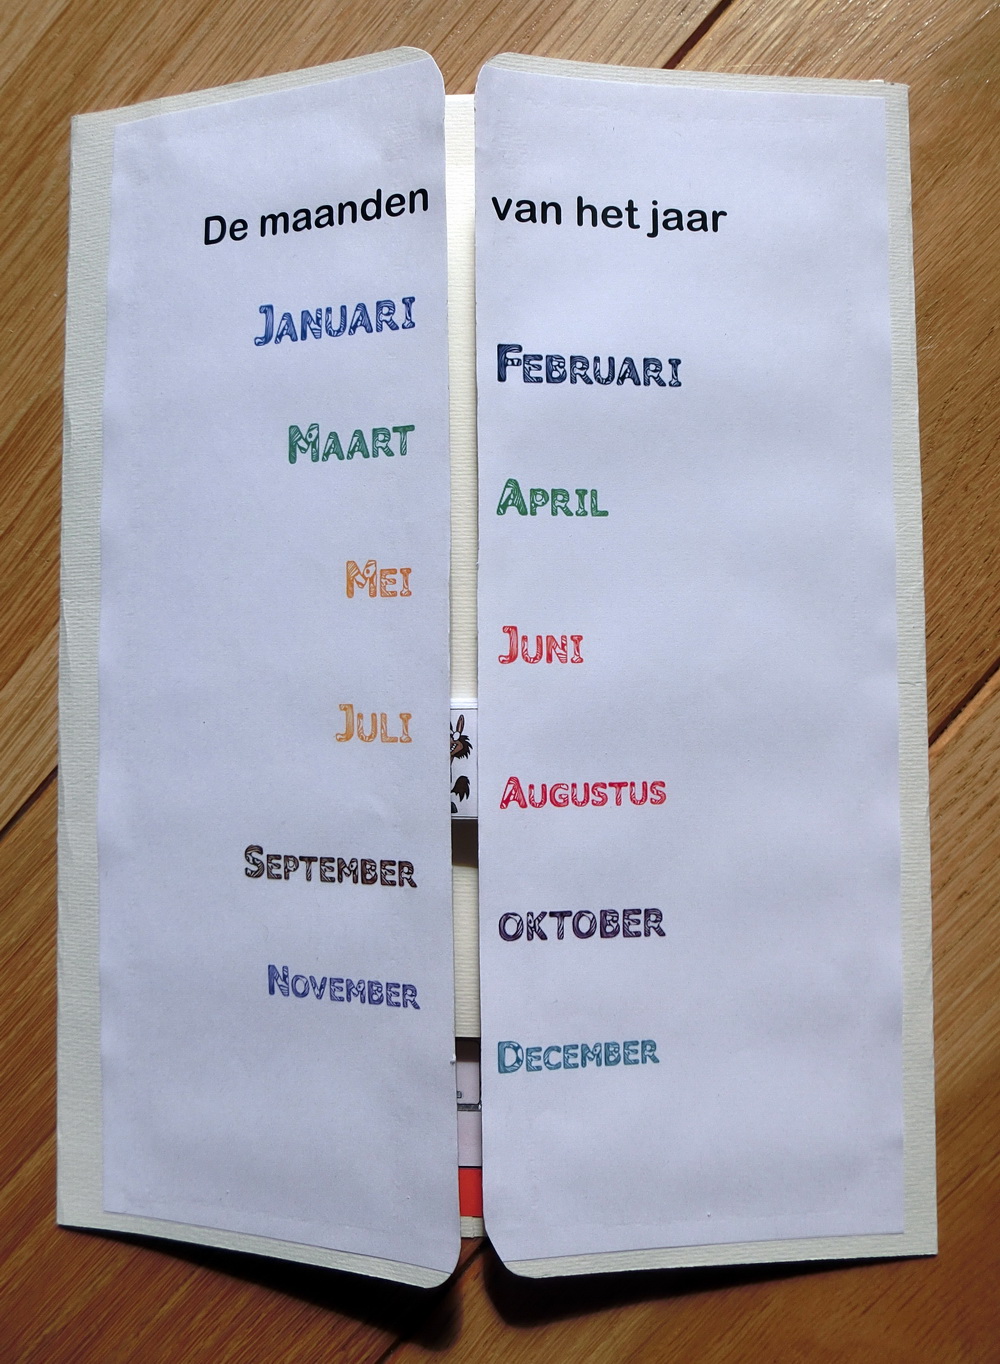 De maanden van het jaar
Januari
Februari
Maart
April
Mei
Juni
Juli
Augustus
September
OKTOBER
November
December